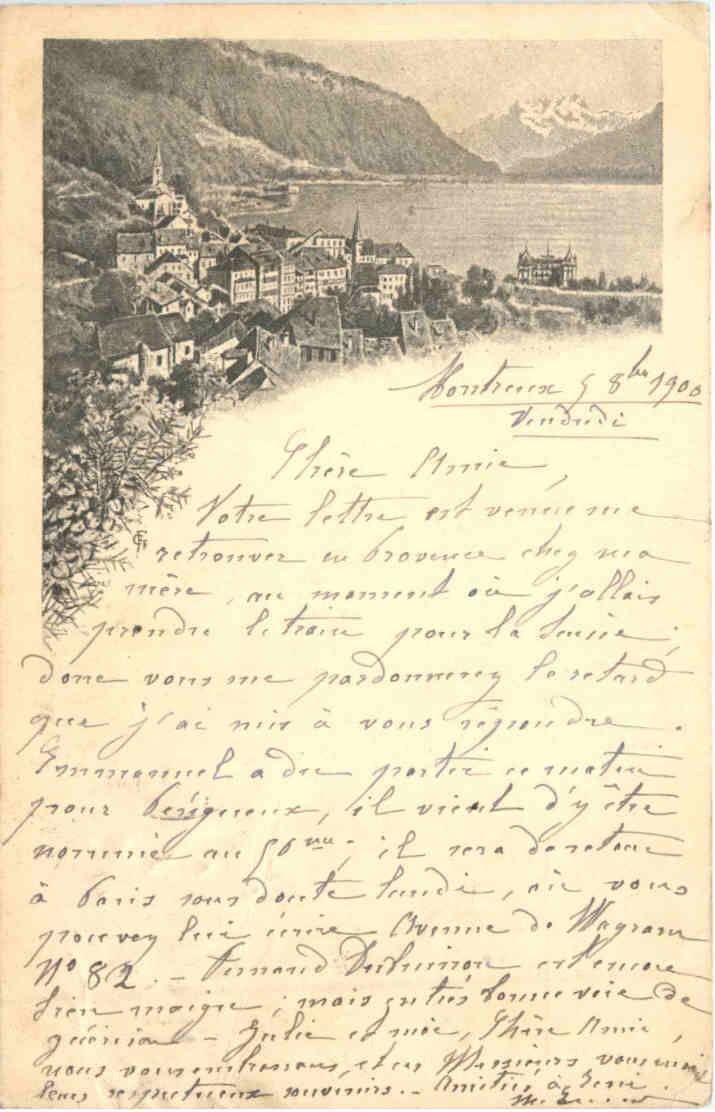 Montreux 5 8bre 1900
Vendredi
Chère Amie,
Votre lettre est venue me
retrouver en Provence chez ma
mère, au moment où j'allais
prendre le train pour la Suisse ;
donc vous me pardonnerez le retard
que j'ai mis à vous répondre.
Emmanuel a du partir ce matin
pour Périgueux, il vient d'y être
nommé au 50me ; il sera de retour
à Paris sans doute lundi, où vous
pouvez lui écrire Avenue de Wagram
No 82. – Fernand est encore
bien maigre ; mais en très bonne voie de
guérison – Julie et moi, Chère Amie,
vous embrassons, et ces Messieurs
leurs respectueux souvenirs. – Amitiés à